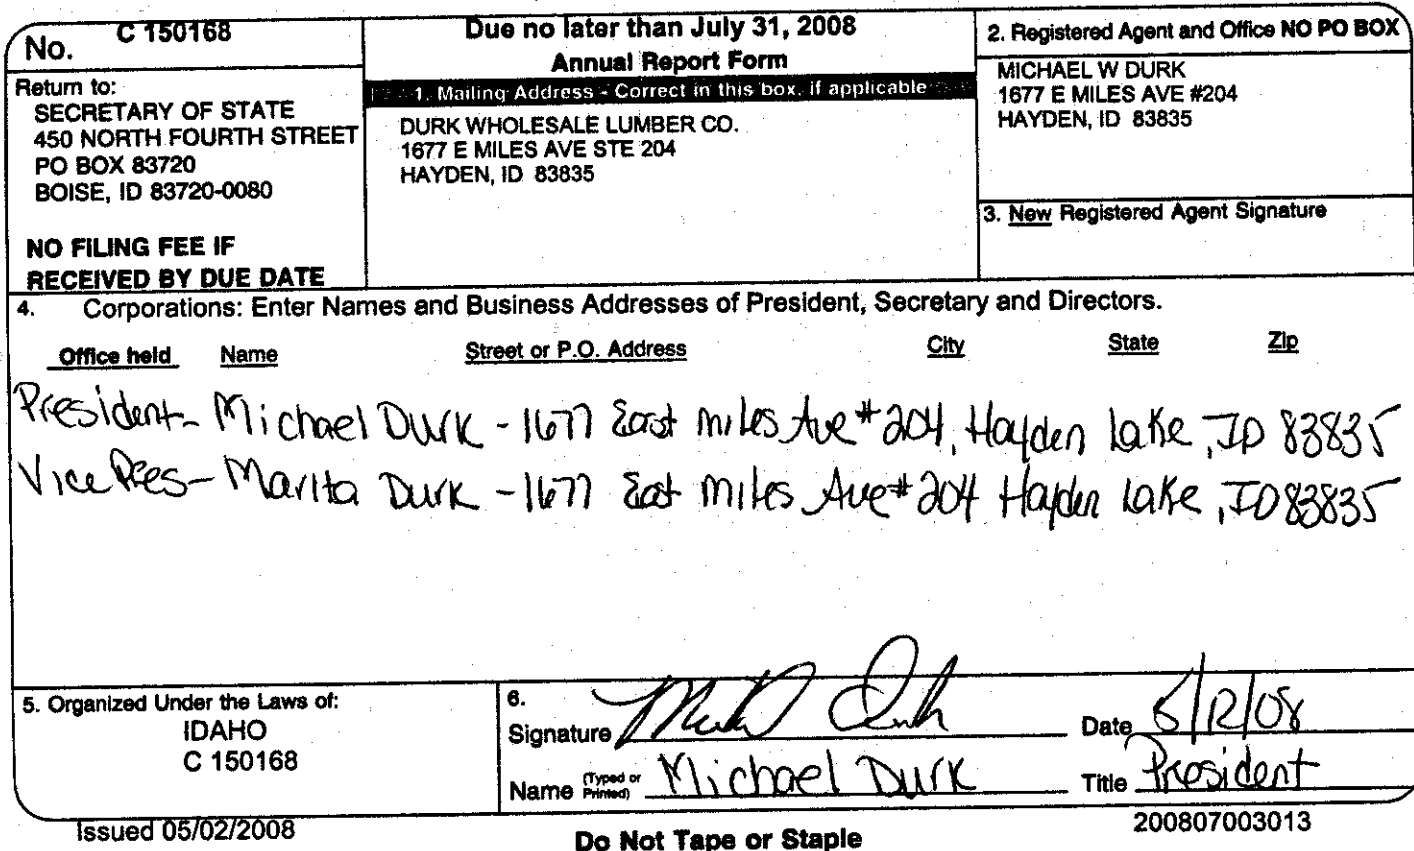 No. C 150168
Return to:
SECRETARY OF STATE
450 NORTH FOURTH STREET
PO BOX 83720
BOISE, ID 83720-0080
NO FILING FEE IF
RECEIVED BY DUE DATE
Due no later than July 31, 2008
Annual Report Form
1. Mailing Address - Correct in this box, if applicable
DURK WHOLESALE LUMBER CO.
1677 E MILES AVE STE 204
HAYDEN, ID 83835
2. Registered Agent and Office NO PO BOX
MICHAEL W DURK
1677 E MILES AVE #204
HAYDEN, ID 83835
3. New Registered Agent Signature
4. Corporations: Enter Names and Business Addresses of President, Secretary and Directors.
Office held Name Street or P.O. Address City State Zip
President- Michael Durk - 1677 East Miles Ave #204, Hayden Lake, ID 83835
Vice Pres- Marita Durk - 1677 East Miles Ave #204 Hayden Lake, ID 83835
5. Organized Under the Laws of:
IDAHO
C 150168
6.
Signature Michael Durk Date 5/12/08
Name (Typed or Printed) Michael Durk Title President
Issued 05/02/2008 Do Not Tape or Staple 200807003013